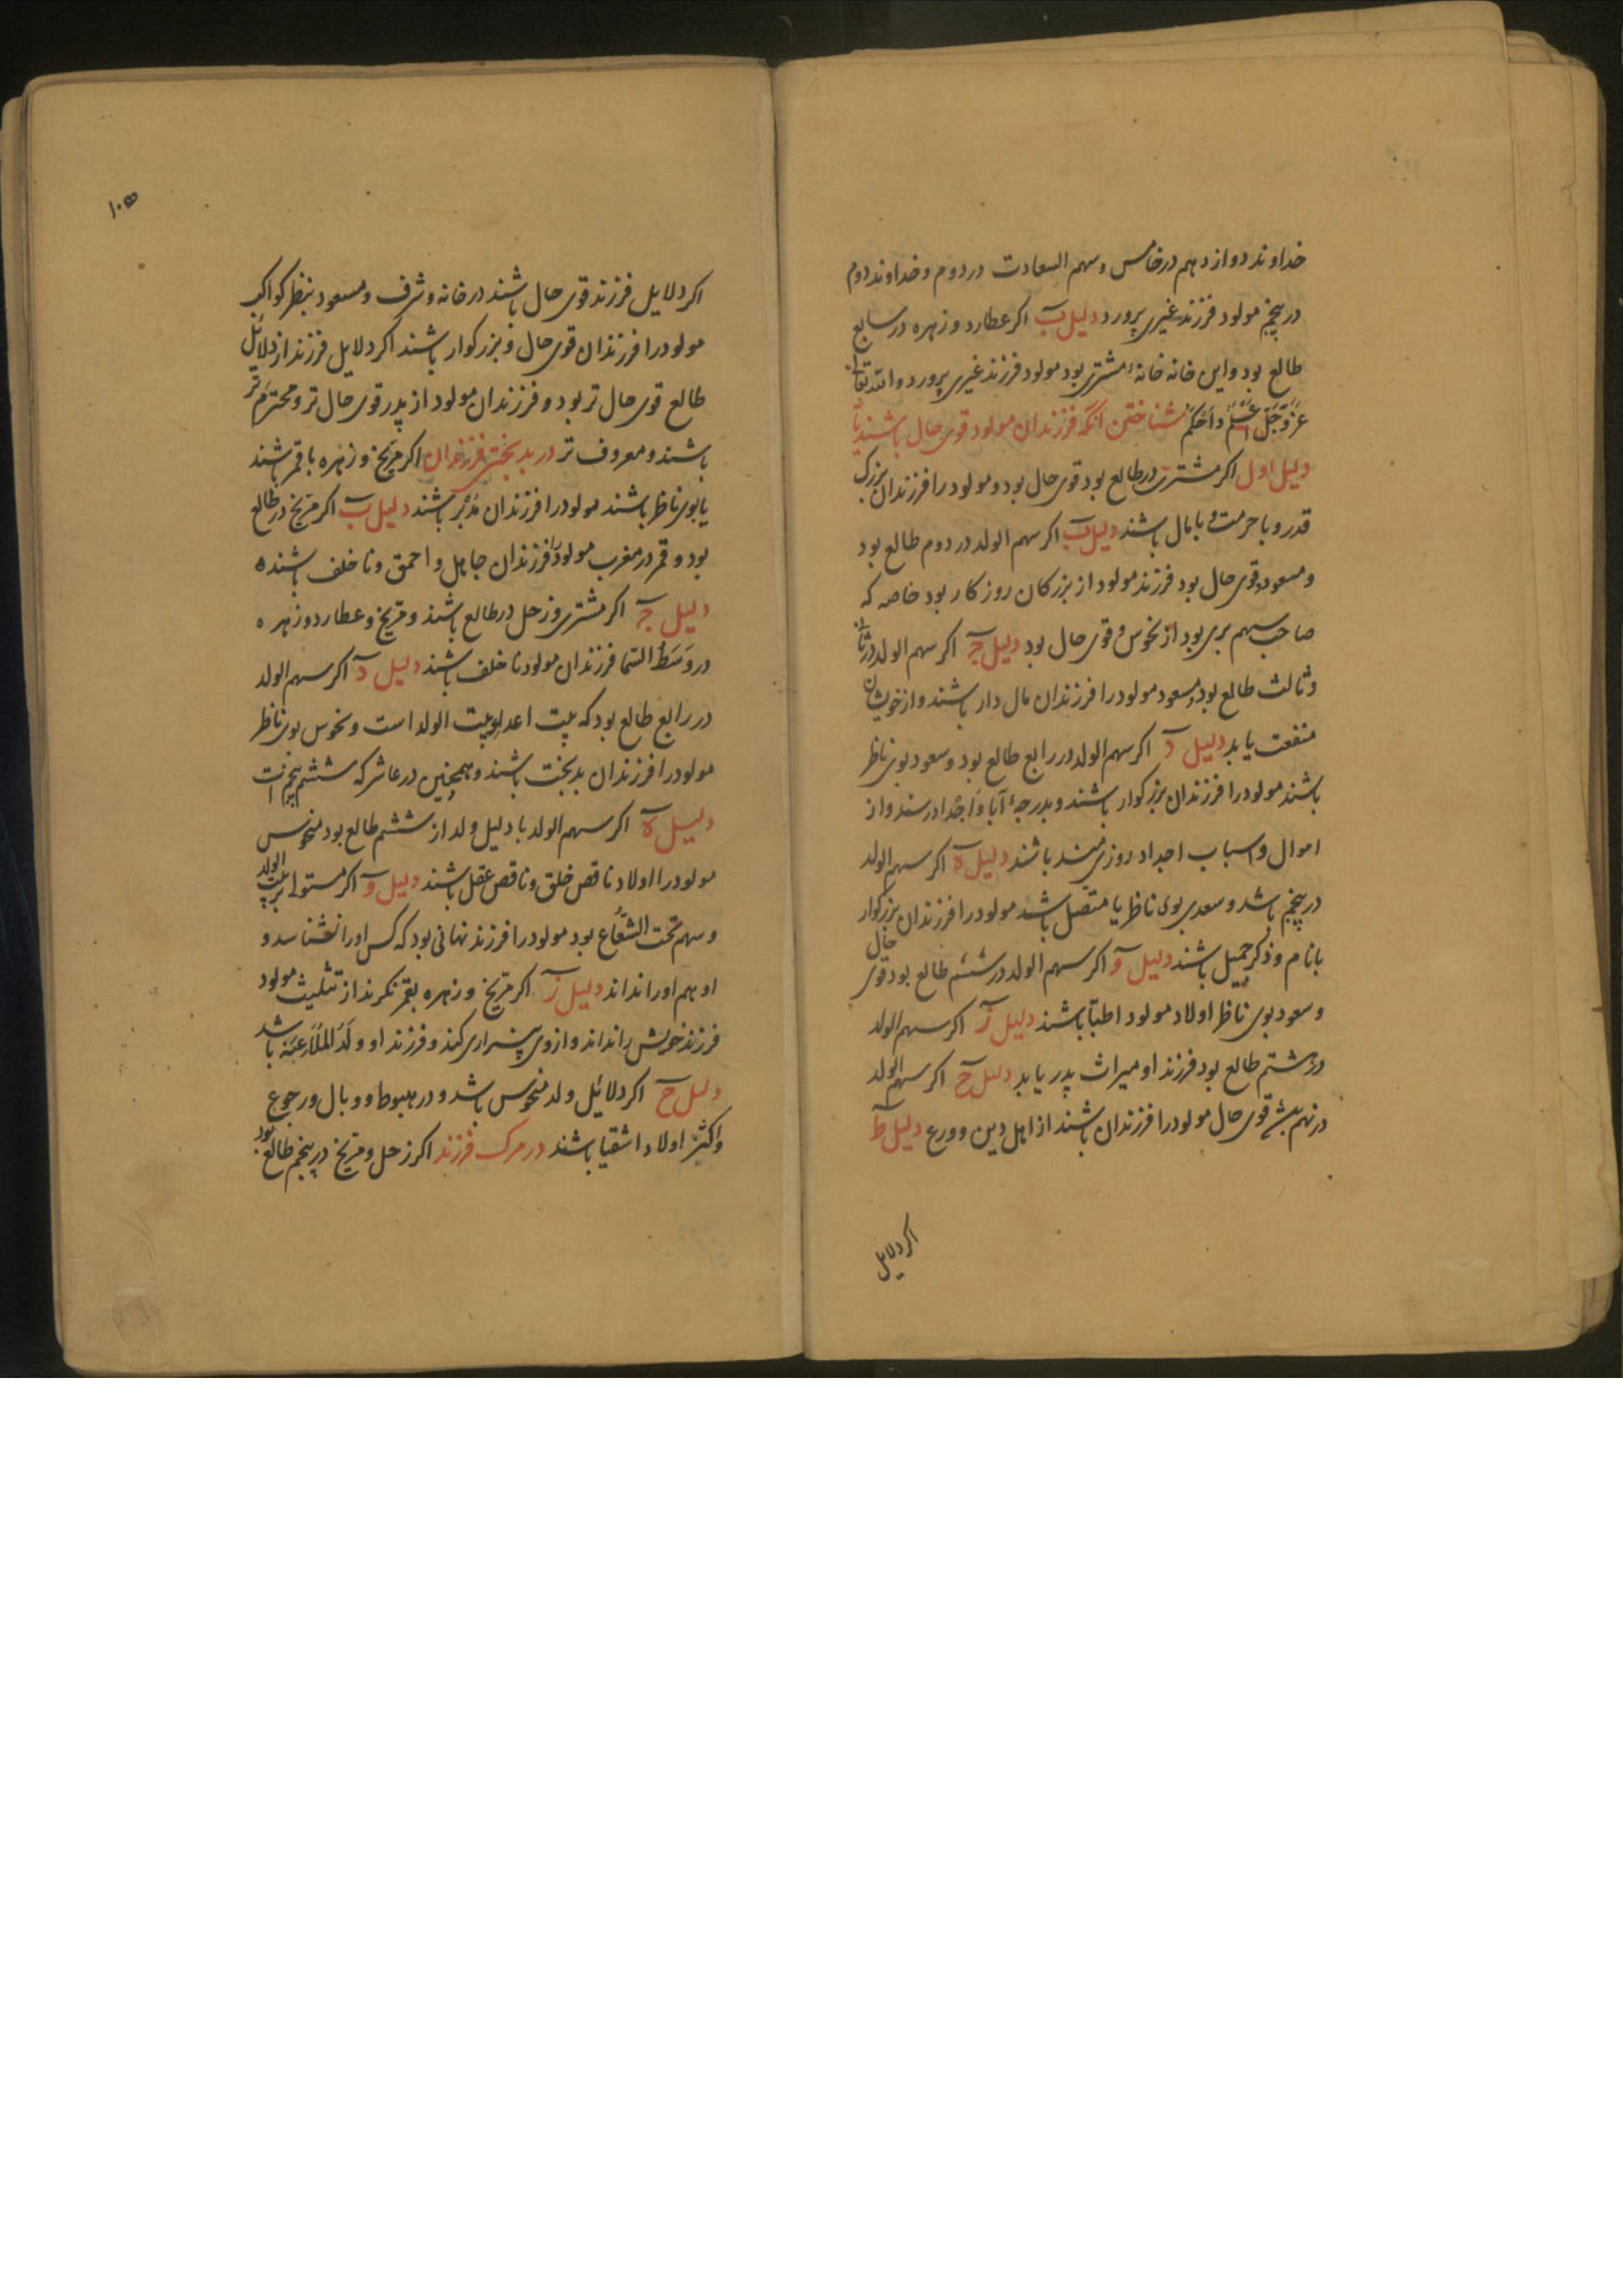 خداوند دوازدهم در خامس و سهم السعادت در دوم و خداوند دوم
در پنجم مولود فرزند غیری پرورد دلیل ب اکر عطارد و زهره در سابع
طالع بود و این خانه خانهٔ مشتری بود مولود فرزند غیری پرورد والله تعالی
عَزَّوَجَلَّ اعلم و اَحْکَم شناختن آنکه فرزندان مولود قوی حال باشند یا
دلیل اول اکر مشتری در طالع بود قوی حال بود و مولود را فرزندان بزرک
قدر و با حرمت و با مال باشند دلیل ب اکر سهم الولد در دوم طالع بود
و مسعود و قوی حال بود فرزند مولود از بزرکان روزکار بود خاصه که
صاحب سهم بری بود از نحوس و قوی حال بود دلیل ج اکر سهم الولد در ثانی
و ثالث طالع بود و مسعود مولود را فرزندان مال دار باشند و از خویشان
منفعت یابد دلیل د اکر سهم الولد در رابع طالع بود و سعود بوی ناظر
باشند مولود را فرزندان بزرکوار باشند و بدرجهٔ آبا و اَجْداد رسند و از
اموال و اسباب اجداد روزی مند باشند دلیل ه اکر سهم الولد
در پنجم باشد و سعدی بوی ناظر یا متصل باشد مولود را فرزندان بزرکوار
با نام و ذکر جمیل باشند دلیل و اکر سهم الولد در ششم طالع بود قوی حال
و سعود بوی ناظر اولاد مولود اطبّا باشند دلیل ز اکر سهم الولد
در هشتم طالع بود فرزند او میراث پدر یابد دلیل ح اکر سهم الولد
در نهم باشد قوی حال مولود را فرزندان باشند از اهل دین و ورع دلیل ط
اکر دلایل
۱۰۵
اکر دلایل فرزند قوی حال باشند در خانه و شرف و مسعود بنظر کواکب
مولود را فرزندان قوی حال و بزرکوار باشند اکر دلایل فرزند از دلائل
طالع قوی حال تر بود و فرزندان مولود از پدر قوی حال تر و محترم تر
باشند و معروف تر در بدبختی فرزندان اکر مریخ و زهره با قمر باشند
یا بوی ناظر باشند مولود را فرزندان مُدبر باشند دلیل ب اکر مریخ در طالع
بود و قمر در مغرب مولود را فرزندان جاهل و احمق و ناخلف باشند ه
دلیل ج اکر مشتری و زحل در طالع باشند و مریخ و عطارد و زهره ه
در وَسَطُ السّما فرزندان مولود ناخلف باشند دلیل د اکر سهم الولد
در رابع طالع بود که بیت اعدای بیت الولد است و نحوس بوی ناظر
مولود را فرزندان بدبخت باشند و همچنین در عاشر که ششم پنجم است
دلیل ه اکر سهم الولد با دلیل ولد از ششم طالع بود منحوس
مولود را اولاد ناقص خلق و ناقص عقل باشند دلیل و اکر مستولی بر بیت الولد
و سهم تحت الشّعاع بود مولود را فرزند نهانی بود که کس او را نشناسد و
او هم او را نداند دلیل ز اکر مریخ و زهره بقمر نکرند از تثلیث مولود
فرزند خویش را نداند و از وی بیزاری کند و فرزند او ولد الملاعنه باشد
دلیل ح اکر دلائل ولد منحوس باشد و در هبوط و وبال و رجوع
و اکثر اولاد اشقیا باشند در مرک فرزند اکر زحل و مریخ در پنجم طالع بود